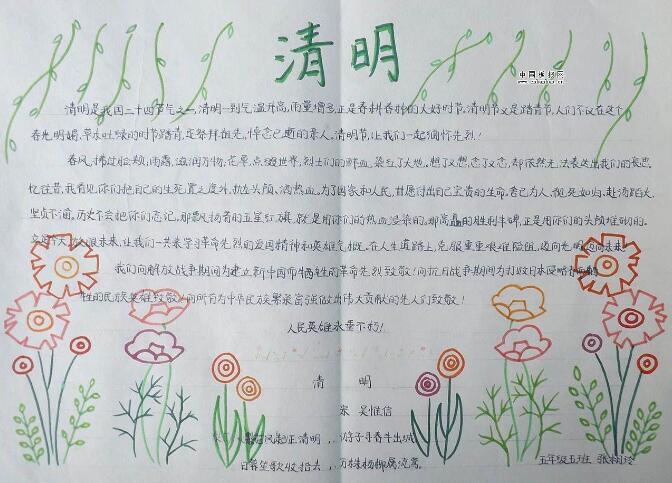 清明
中国素材网
清明是我国二十四节气之一,清明一到气温升高,雨量增多,正是春耕春种的大好时节,清明节又是踏青节,人们不仅在这个
春光明媚,草木吐绿的时节踏青,定祭拜祖先,悼念已逝的亲人,清明节,让我们一起缅怀先烈!
春风,拂过脸颊,雨露,滋润万物;花草,点缀世界,烈士们的鲜血,染红了大地。想了又想,念了又念,却依然无法表达出我们的哀思。
忆往昔,我看见你们把自己的生死置之度外,抛头颅、洒热血。为了国家和人民,甘愿付出自己宝贵的生命。舍己为人、视死如归、赴汤蹈火、
坚贞不渝。历史不会把你们忘记,那飘扬着的五星红旗,就是用你们的热血浸染的,那高矗的胜利丰碑,正是用你们的头颅堆砌的。
立足今天,放眼未来,让我们一共来学习革命先烈的爱国精神和英雄气概,在人生道路上,克服重重艰难险阻,迈向光明,迈向未来。
我们向解放战争期间为建立新中国而牺牲的革命先烈致敬!向抗日战争期间为打败日本侵略者而牺
牲的民族英雄致敬!向所有为中华民族繁荣富强做出伟大贡献的先人们致敬!
人民英雄永垂不朽!
清 明
宋 吴惟信
正清明,游子寻春半出城。
日暮笙歌收拾去,万株杨柳属流莺。
五年级五班 张